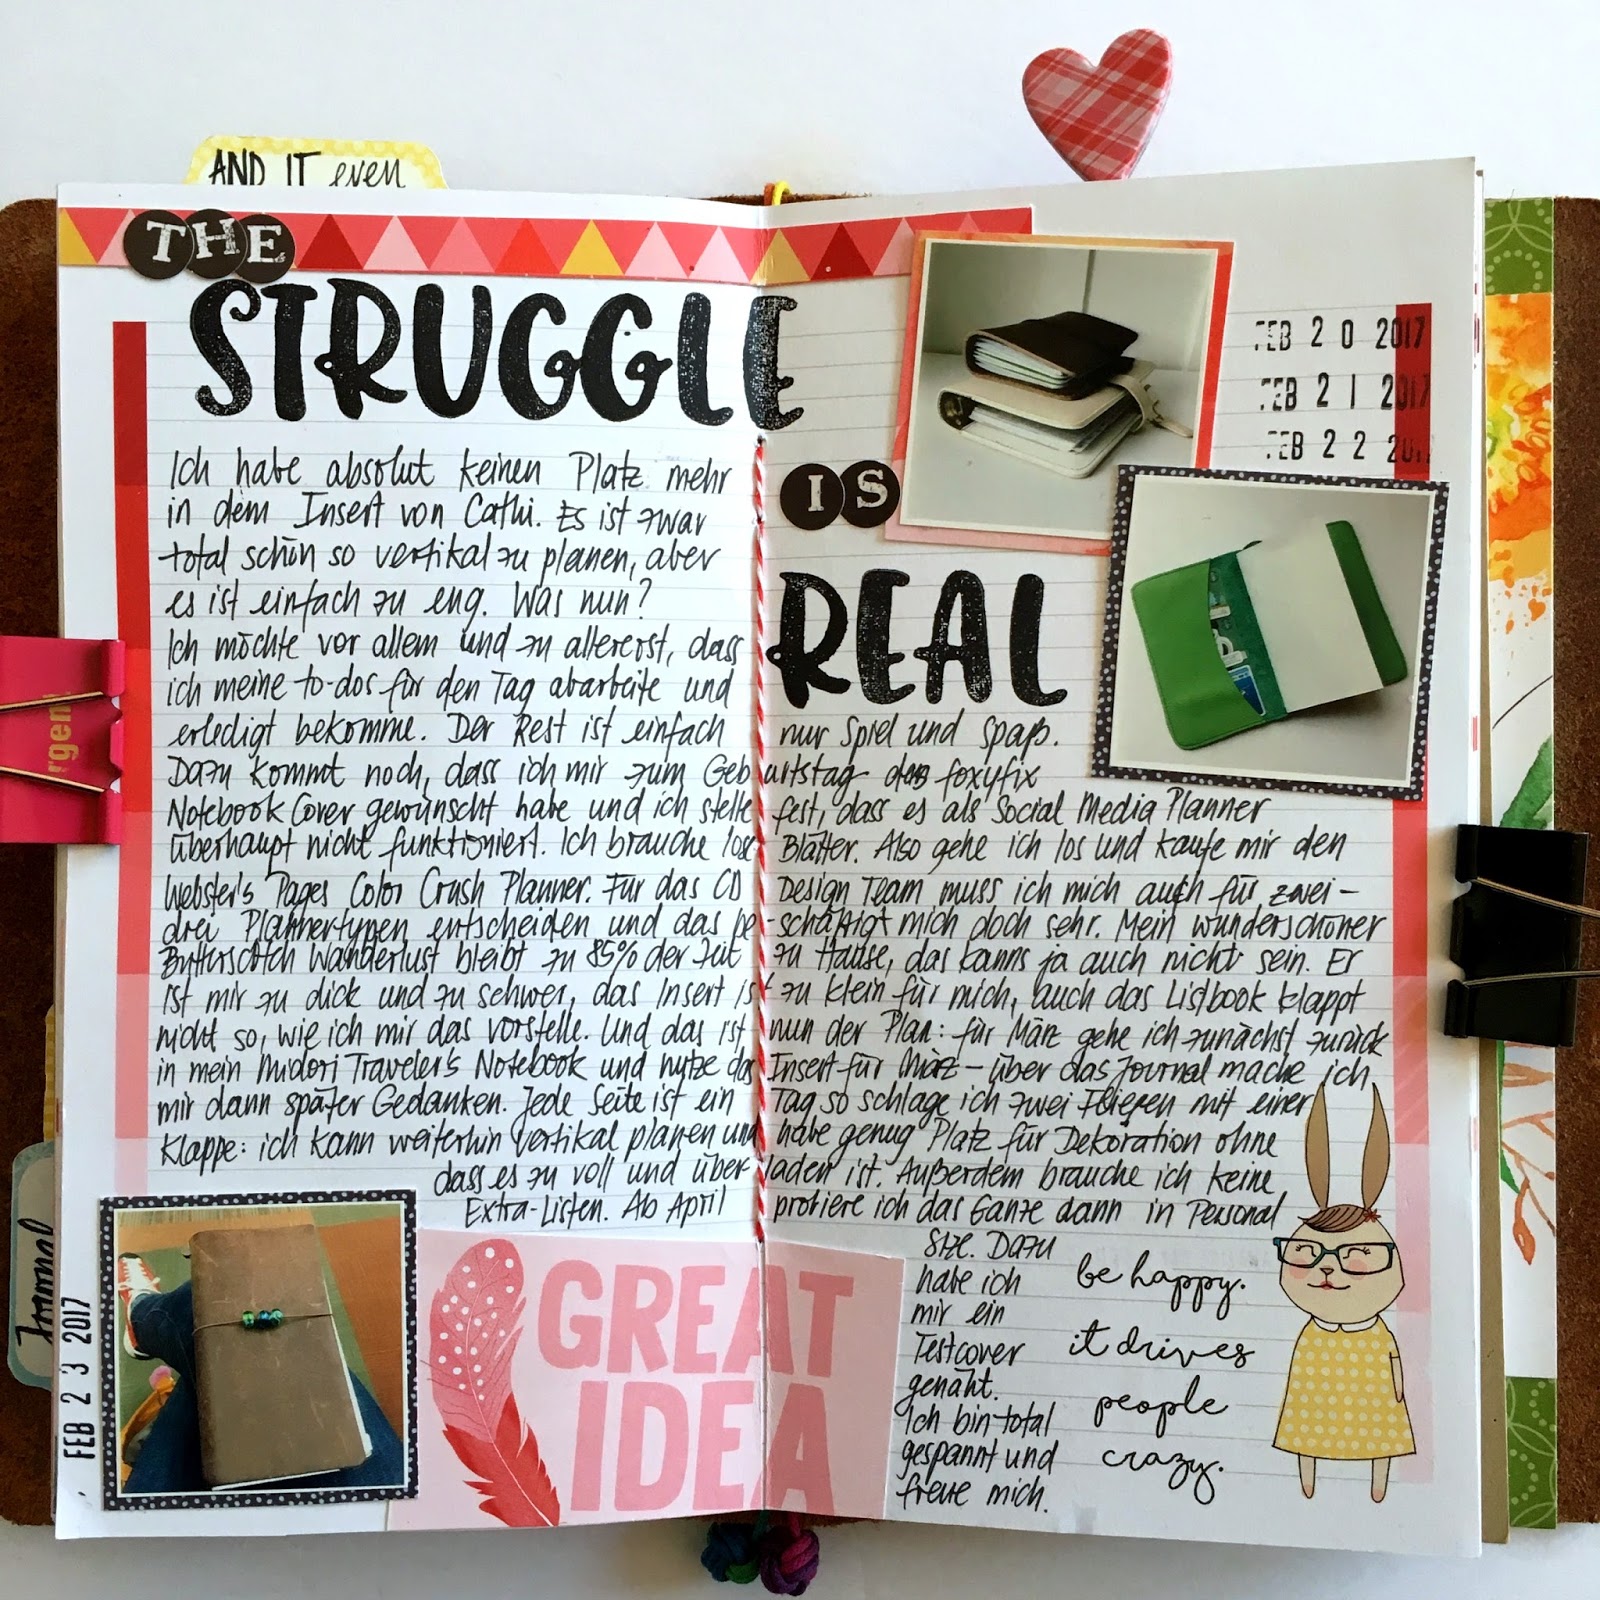 AND IT even
THE
STRUGGLE
IS
REAL
FEB 20 2017
FEB 21 2017
FEB 22 201
Ich habe absolut keinen Platz mehr
in dem Insert von Cathi. Es ist zwar
total schön so vertikal zu planen, aber
es ist einfach zu eng. Was nun?
Ich möchte vor allem und zu allererst, dass
ich meine to-dos für den Tag abarbeite und
erledigt bekomme. Der Rest ist einfach nur Spiel und Spaß.
Dazu kommt noch, dass ich mir zum Geburtstag das foxyfix
Notebook Cover gewünscht habe und ich stelle fest, dass es als Social Media Planner
überhaupt nicht funktioniert. Ich brauche lose Blätter. Also gehe ich los und kaufe mir den
Webster's Pages Color Crush Planner. Für das CD Design Team muss ich mich auch für zwei-
drei Plannertypen entscheiden und das be-schäftigt mich doch sehr. Mein wunderschöner
Butterscotch Wanderlust bleibt zu 85% der Zeit zu Hause, das kanns ja auch nicht sein. Er
ist mir zu dick und zu schwer, das Insert ist zu klein für mich, auch das Listbook klappt
nicht so, wie ich mir das vorstelle. Und das ist nun der Plan: für März gehe ich zunächst zurück
in mein Midori Traveler's Notebook und nutze das Insert für März – über das Journal mache ich
mir dann später Gedanken. Jede Seite ist ein Tag so schlage ich zwei Fliegen mit einer
Klappe: ich kann weiterhin vertikal planen und habe genug Platz für Dekoration ohne
dass es zu voll und überladen ist. Außerdem brauche ich keine
Extra-Listen. Ab April probiere ich das Ganze dann in Personal
Size. Dazu
habe ich
mir ein
Testcover
genäht.
Ich bin total
gespannt und
freue mich.
be happy.
it drives
people
crazy.
GREAT
IDEA
FEB 23 2017
Journal
rgent